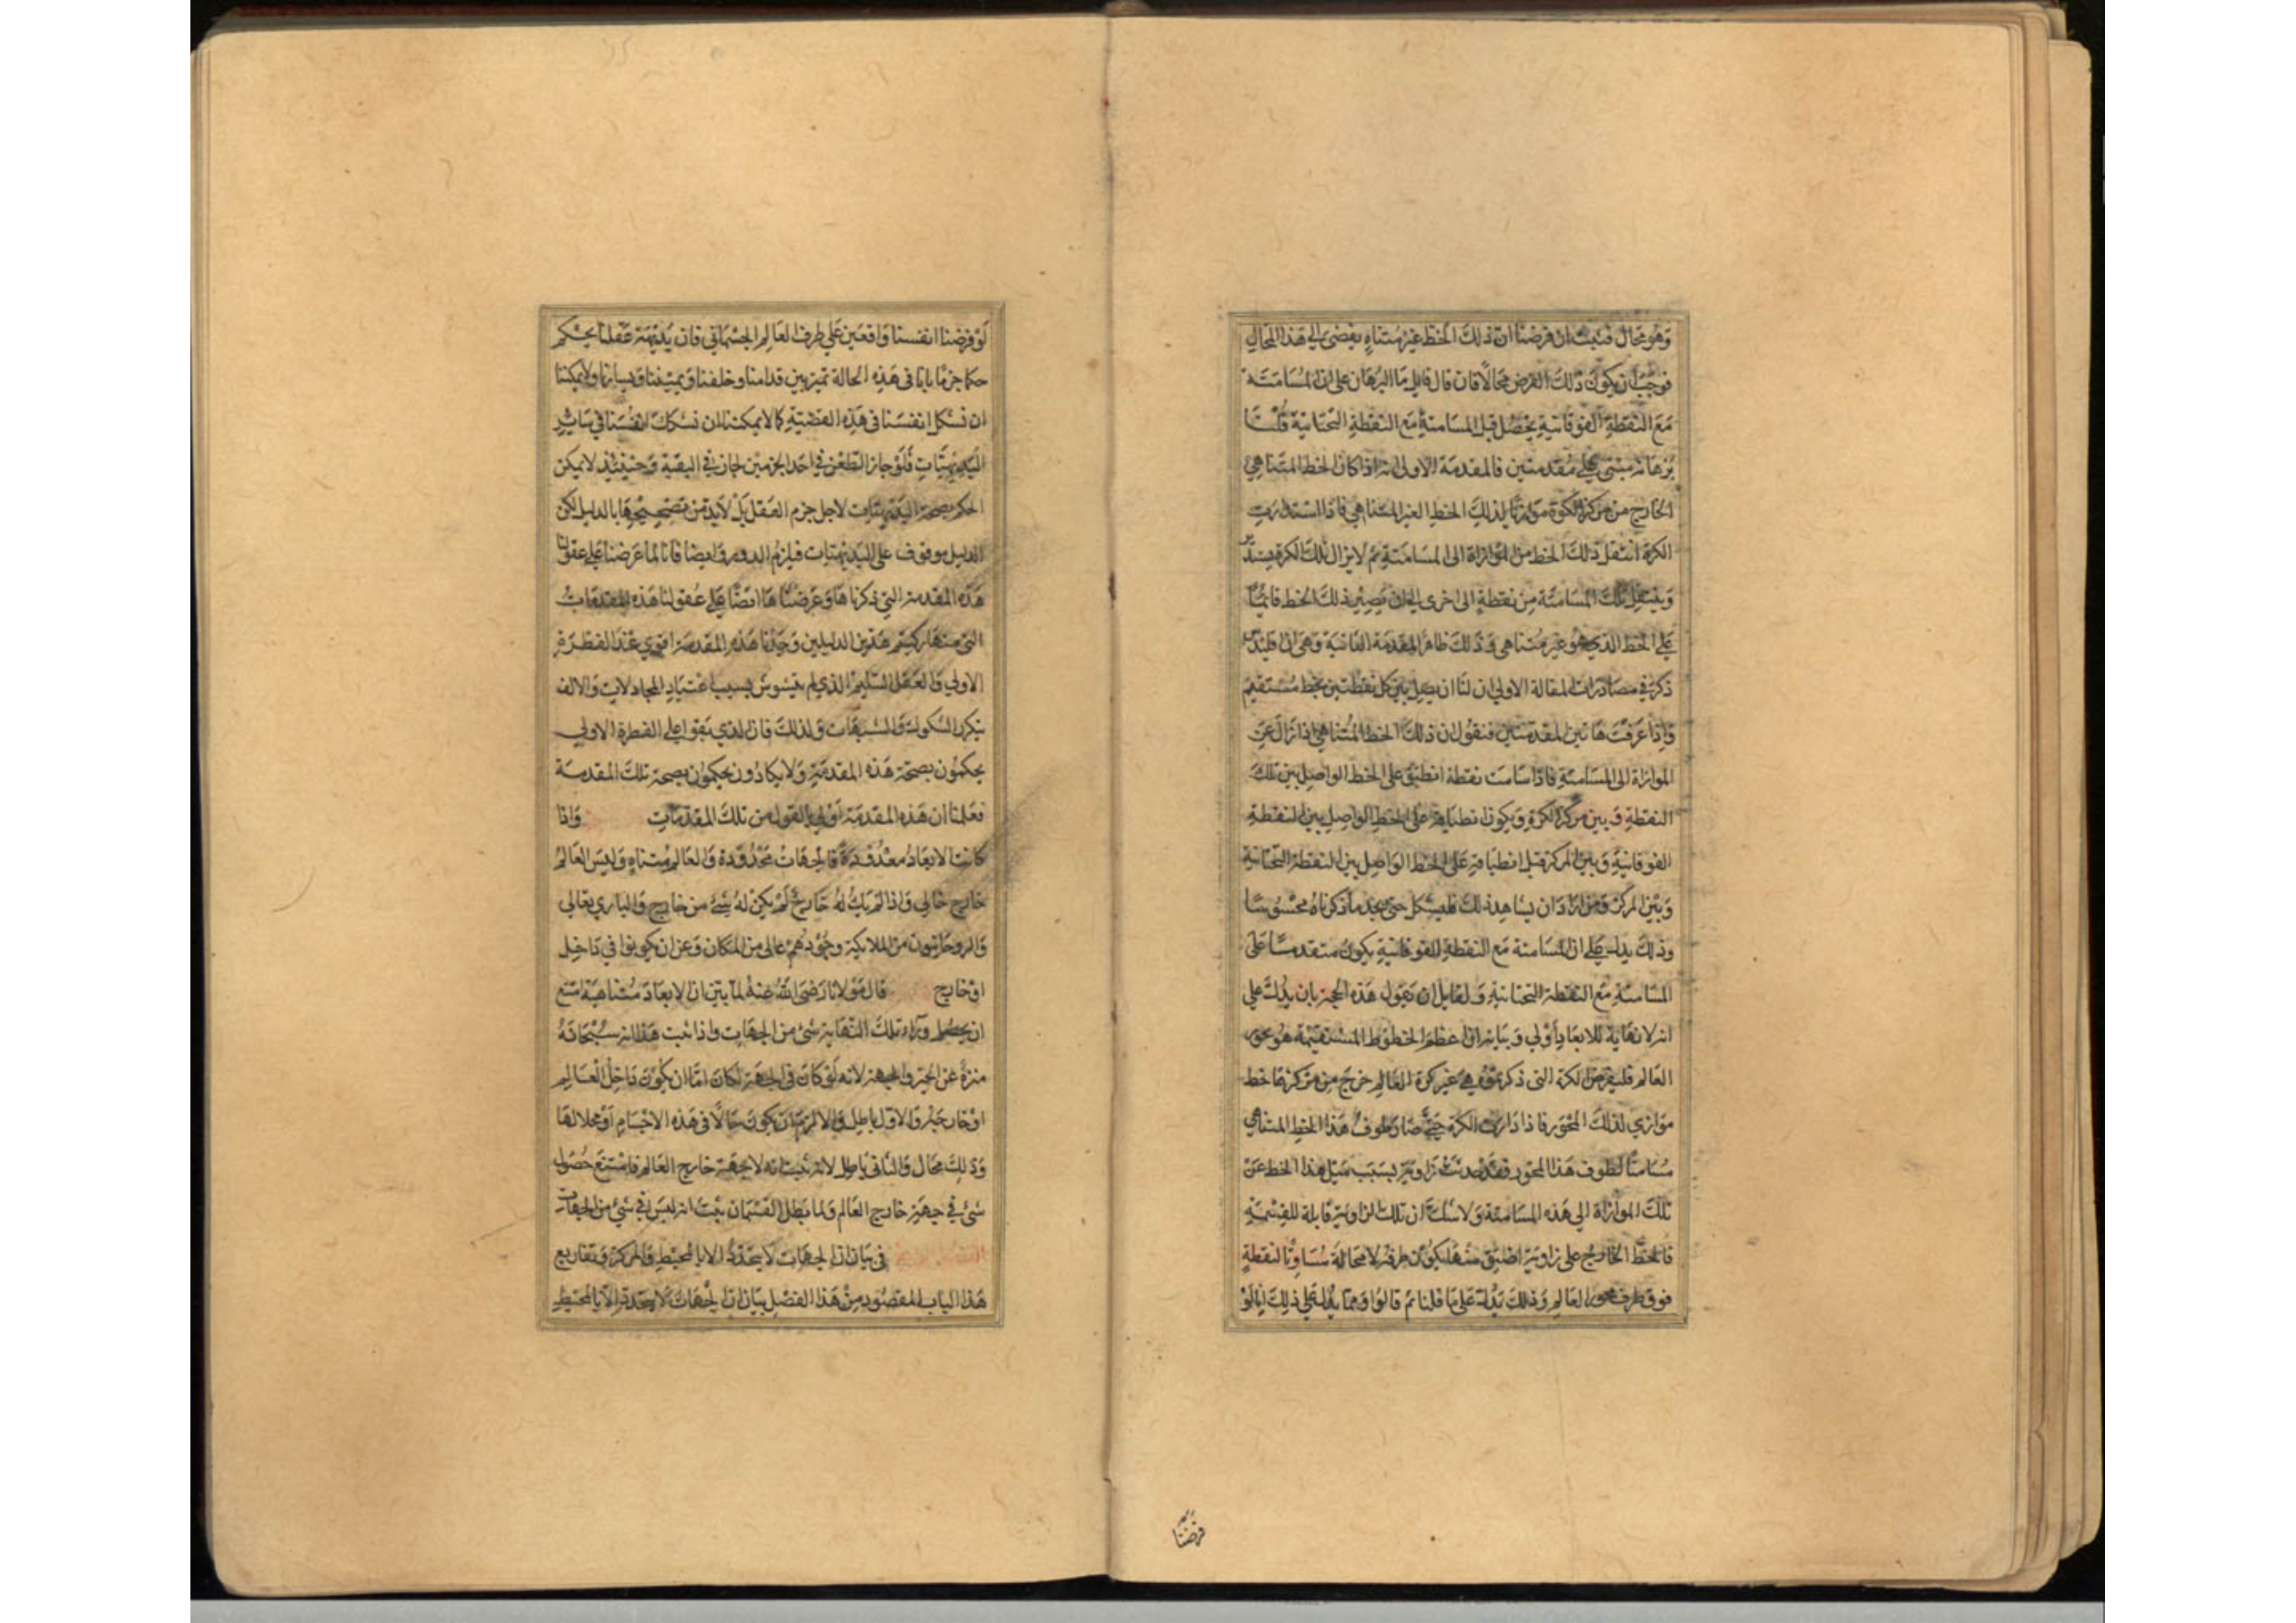 وهو محال فثبت ان فرضنا ان ذلك الخط غير متناه يفضي الى هذا المحال
فوجب ان يكون ذلك الفرض محالا فان قال قايل ما البرهان على ان المسامتة
مع النقطة الفوقانية يحصل قبل المسامتة مع النقطة التحتانية قلنا
برهانه مبتنى على مقدمتين فالمقدمة الاولى انه اذا كان الخط المتناهي
الخارج من مركز الكرة موازيا لذلك الخط الغير المتناهي فاذا استدارت
الكرة انتقل ذلك الخط من الموازاة الى المسامتة ثم لا يزال تلك الكرة يستدير
وينتقل تلك المسامتة من نقطة الى اخرى الى ان يصير ذلك الخط قائما
على الخط الذي هو غير متناهي وذلك ظاهر المقدمة الثانية وهي ان اقليدس
ذكر في مصادرات المقالة الاولى ان لنا ان يصل بين كل نقطتين بخط مستقيم
واذا عرفت هاتين المقدمتين فنقول ان ذلك الخط المتناهي اذا زال عن
الموازاة الى المسامتة فاذا سامت نقطة انطبق على الخط الواصل بين تلك
النقطة وبين مركز الكرة ويكون انطباقه على الخط الواصل بين النقطة
الفوقانية وبين المركز قبل انطباقه على الخط الواصل بين النقطة التحتانية
وبين المركز ومن اراد ان يشاهد ذلك فليشكل حتى يجد ما ذكرناه محسوسا
وذلك يدل على ان المسامتة مع النقطة الفوقانية يكون متقدما على
المسامتة مع النقطة التحتانية ولقايل ان يقول هذه الحجة بان يدل على
انه لا نهاية للابعاد اولى وبيانه ان اعظم الخطوط المستقيمة هو محور
العالم فليفرض الكرة التى ذكرتموه هي غير كرة العالم خرج من مركزها خط
موازي لذلك المحور فاذا دارت الكرة حتى صار طرف هذا الخط المتناهي
مسامتا لطرف هذا المحور فقد حدثت زاوية بسبب ميل هذا الخط عن
تلك الموازاة الى هذه المسامتة ولا شك ان تلك الزاوية قابلة للقسمة
فالخط الخارج على زاوية اضيق منها يكون طرفه لا محالة مساويا لنقطة
فوق طرف محور العالم وذلك يدل على ما قلنا ثم قالوا ومما يدل على ذلك انا لو
فرضنا
لو فرضنا انفسنا واقفين على طرف العالم الجسماني فان بديهة عقلنا يحكم
حكما جزما بانا فى هذه الحالة تميز بين قدامنا وخلفنا ويميننا ويسارنا ولا يمكننا
ان نشكك انفسنا فى هذه القضية كما لا يمكننا ان نشكك انفسنا في سائر
البديهيات فلو جاز الطعن في احد الجزمين لجاز في البقية وحينئذ لا يمكن
الحكم بصحة البديهيات لاجل جزم العقل بل لابد من تصحيحها بالدليل لكن
الدليل موقوف على البديهيات فيلزم الدور وايضا فانا لما عرضنا على عقولنا
هذه المقدمة التي ذكرناها وعرضنا ايضا على عقولنا هذه المقدمات
التى منها ركبتم هذين الدليلين وجدنا هذه المقدمة اقوى عند الفطرة
الاولى والعقل السليم الذي لم يتشوش بسبب اعتياد المجادلات والالف
بتكرر الشكوك والشبهات ولذلك فان الذي بقوا على الفطرة الاولى
يحكمون بصحة هذه المقدمة ولا يكادون يحكمون بصحة تلك المقدمة
فعلمنا ان هذه المقدمة اولى بالقول من تلك المقدمات واذا
كانت الابعاد معدودة فالجهات محدودة والعالم متناه وليس العالم
خارج خالي واذا لم يك له خارج لم يكن له شئ من خارج والباري تعالى
والروحانيون من الملايكة وجنودهم عالى من المكان وعن ان يكونوا في داخل
او خارج قال مولانا رضى الله عنه لما بين ان الابعاد متناهية امتنع
ان يحصل وراء تلك النهاية شئ من الجهات واذا ثبت هذا انه سبحانه
منزه عن الحيز والجهة لانه لو كان فى الجهة لكان اما ان يكون داخل العالم
او خارجه والاول باطل والا لزم ان يكون حالا فى هذه الاجسام او محلا لها
وذلك محال والثانى باطل لانه ثبت انه لا جهة خارج العالم فامتنع حصول
شئ في جهة خارج العالم ولما بطل القسمان ثبت انه ليس في شئ من الجهات
في بيان ان الجهات لا يتحدد الا بالمحيط والمركز وتفاريع
هذا الباب المقصود من هذا الفصل بيان ان الجهات لا يتحدد الا بالمحيط